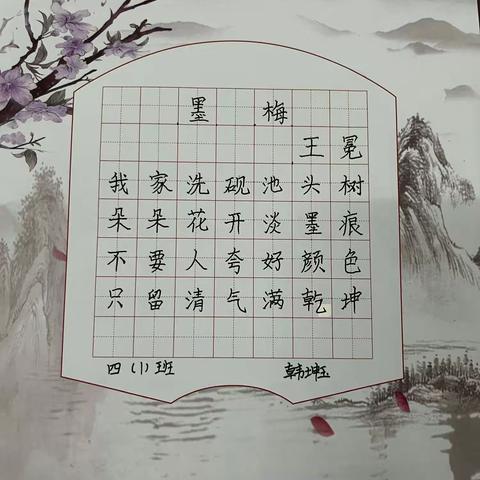 墨梅
王冕
我家洗砚池头树
朵朵花开淡墨痕
不要人夸好颜色
只留清气满乾坤
四（1）班 韩坤玉